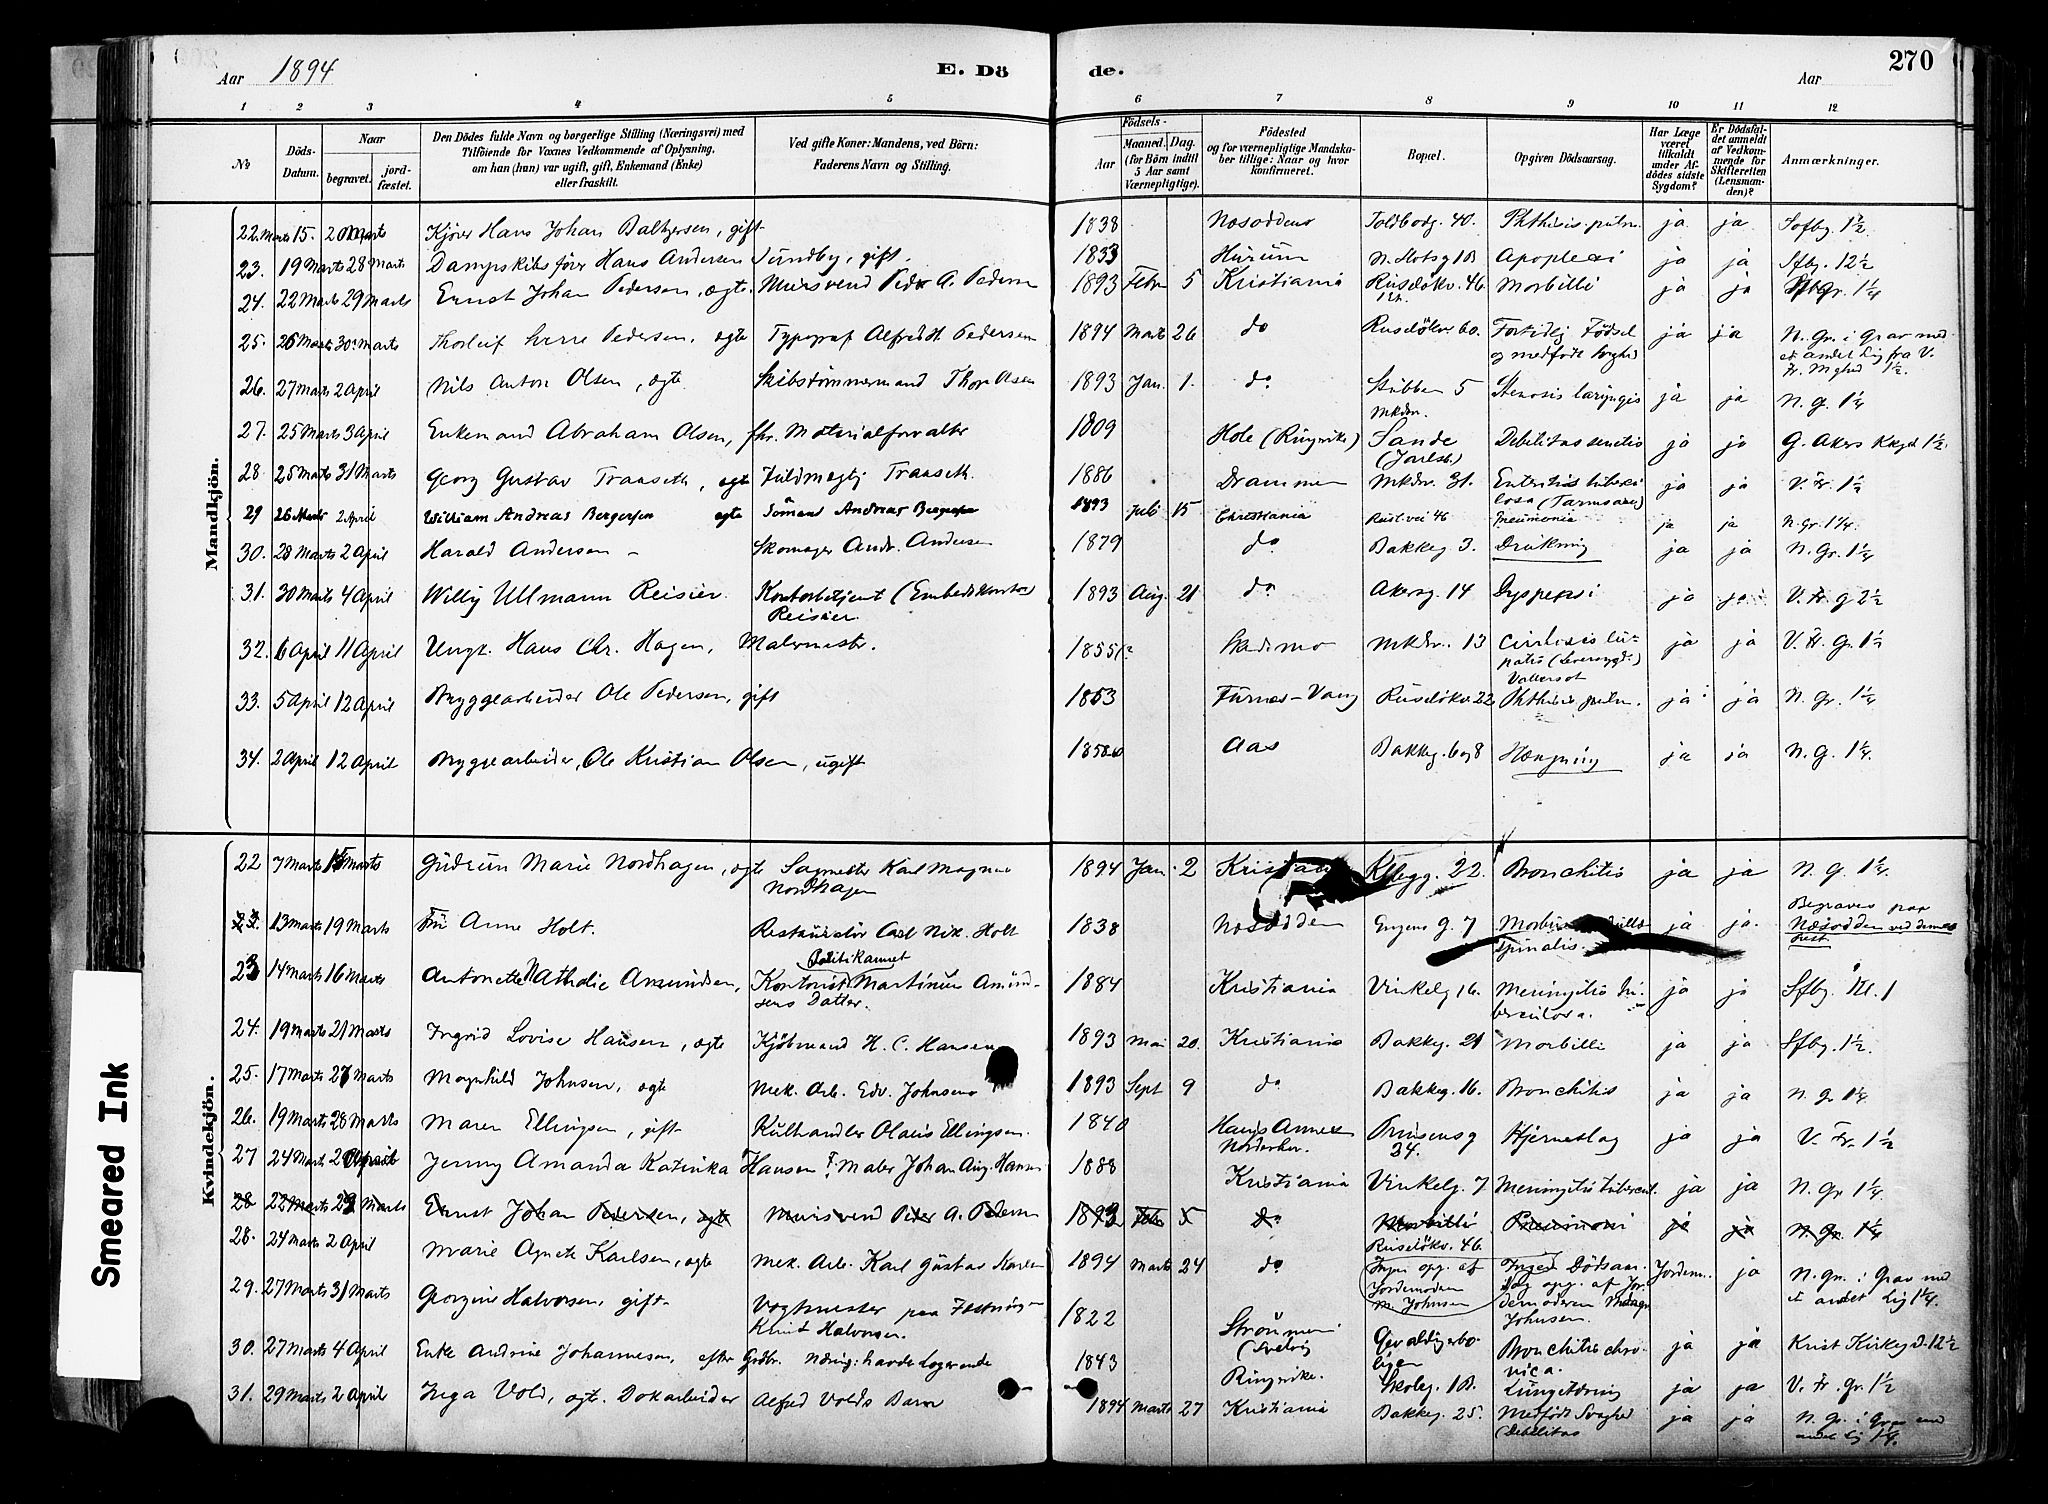 Aar 1894
E. Dö
de.
Aar
270
1 2 3 4 5 6 7 8 9 10 11 12
No
Döds-Datum.
Naar
begravet.
jord-fæstet.
Den Dödes fulde Navn og borgerlige Stilling (Næringsvei) med
Tilföiende for Voxnes Vedkommende af Oplysning,
om han (hun) var ugift, gift, Enkemand (Enke)
eller fraskilt.
Ved gifte Koner: Mandens, ved Börn:
Faderens Navn og Stilling.
Födsels-
Aar
Maaned. Dag.
(for Börn indtil
5 Aar samt
Værnepligtige).
Födested
og for værnepligtige Mandska-
ber tillige: Naar og hvor
konfirmeret.
Bopæl.
Opgiven Dödsaarsag.
Har Læge
været
tilkaldt
under Af-
dödes sidste
Sygdom?
Er Dödsfal-
det anmeldt
af Vedkom-
mende for
Skifteretten
(Lensman-
den)?
Anmærkninger.
Mandkjön.
22. Marts 15. 20 Marts Kjører Hans Johan Baltzersen, gift 1838 Nesodden Toldbodg. 40. Phthisis pulm. ja ja Sofbg. 1½
23. 19 Marts 28 Marts Dampskibsfører Hans Andersen Sundby, gift. 1833 Hurum N. Slotsg 1B Apoplexi ja ja Sfbg. 12½
24. 22 Marts 29 Marts Ernst Johan Pedersen, ægte Mursvend Peder A. Pedersen 1893 Febr 5 Kristiania Ruseløkv. 46 Morbilli ja ja Gr. 1¼
25. 26 Marts 30 Marts Thorleif Pedersen, ægte Typograf Alfred H. Pedersen 1894 Marts 26 do Ruseløkv 60. Fortidlig Födsel ja ja N. Gr. i Grav med
og medfödt Svaghed et andet Lig fra V.
1½.
26. 27 Marts 2 April Nils Anton Olsen, ægte Skibstömmermand Thor Olsen 1893 Jan. 1. do Stubben 5 Stenosis laryngis ja ja N. G. 1¼
27. 25 Marts 3 April Enkemand Abraham Olsen, fhv. Materialforvalter 1809 Hole (Ringerike) Sande Debilitas senilis ja ja G. Akers Kkgd 1½.
(Jarlsb.)
28. 25 Marts 31 Marts Georg Gustav Traaseth, ægte Fuldmægtig Traaseth. 1886 Drammen Mkdv. 31. Enteritis tuberku- ja ja V. Fr. 1½
losa
29 26 Marts 2 April William Andreas Bergersen ægte Sömand Andreas Bergersen 1893 Juli 15 Christiania Rusl.vei 46 Pneumonia ja ja N. Gr. 1¼.
30. 28 Marts 2 April Harald Andersen – Skomager Andr. Andersen 1879 do Bakkeg. 3. Drukning ja ja N. Gr. 1¼
31. 30 Marts 4 April Willy Ullmann Reisier Kontorbetjent (Embedskontor) 1893 Aug. 21 do Akersg. 14 Dyspepsi ja ja V. Fr. g 2½
Reisier.
32. 6 April 11 April Ungk. Hans Chr. Hagen, Malermester. 1855? Mkdv. 13 Cirrhosis ja ja V. Fr. G. 1½
Vattersot
33. 5 April 12 April Bryggearbeider Ole Pedersen, gift 1853 Furnes–Vang Ruseløkv. 22 Phthisis pulm. ja ja N. Gr. 1¼
34. 2 April 12 April Bryggearbeider, Ole Kristian Olsen, ugift 1858 Aas Bakkeg. 6 og 8 Hængning ja ja N. G. 1¼.
Kvindekjön.
22 7 Marts 15 Marts Gudrun Marie Nordhagen, ægte Sagmester Karl Magnus 1894 Jan. 2 22. Bronchitis ja ja N. G. 1¼
Nordhagen
23. 13 Marts 19 Marts Fru Anne Holt. Restauratör Carl Nik. Holt 1838 Nesodden G. 7 spinalis. ja ja. Begraves paa
Næsodden ved dennes
Prest.
23 14 Marts 16 Marts Antonette Nathalie Amundsen, Kontorist Martinius Amund- 1884 Kristiania Vinkelg 16. Meningitis tu- ja ja Sfbg. Kl. 1
sens Datter. berculosa.
24. 19 Marts 21 Marts Ingrid Lovise Hansen, ægte Kjøbmand H. C. Hansen 1893 Mai 20. Kristiania Bakkeg. 21 Morbilli ja ja Sfbg. 1½.
25. 17 Marts 27 Marts Magnhild Johnsen, ægte Mek. Arb. Edv. Johnsens 1893 Sept 9 do Bakkeg. 16. Bronchitis ja ja N. gr 1¼.
26. 19 Marts 28 Marts Maren Ellingsen, gift Kulhandler Olaus Ellingsen. 1840 Haugs Annex Prinsensg Hjerneslag ja ja V. Fr. 1½
Norderhov. 34.
27 24 Mart. 2 April Jenny Amanda Katinka Hansen Maler Johan Aug. Hansen 1888 Kristiania Vinkelg. 7 Meningitis tubercul. ja ja N. Gr 1¼
28 22 Marts 29 Marts Ernst Johan Pedersen, ægte Mursvend Peder A. Pedersen 1893 Febr 5 Do Morbilli Pneumoni ja ja N. Gr. 1¼
28. 24 Marts 2 April Marie Agnete Karlsen, ægte Mek. Arb. Karl Gustav Karlsen 1894 Marts 24 do Ruseløkv. 46. Ingen Dödsaar- Jordem. ja N. Gr. i Grav med
Ingen opg. af sag opg. af Jor- et andet Lig 1¼.
Jordemoderen demoderen
M. Johnsen Johnsen.
29. 27 Marts 31 Marts Georgine Halvorsen, gift Vagtmester paa Fæstningen 1822 Strömmen Gevaldigerbo- Bronchitis chro- ja ja Krist Kirkegd. 12½
Knut Halvorsen. (Svelvig ligen nica.
30. 27 Marts 4 April Enke Andrine Johannesen, efter Grdbr. Næring: havde Logerende 1843 Ringerike. Skoleg. 1B. Lungetæring ja ja V. Fr. gr. 1½
31. 29 Marts 2 April Inga Vold, ægt. Dokarbeider Alfred Volds Barn 1894 Marts 27 Kristiania Bakkeg. 25. Medfödt Svaghed ja ja N. Gr. i Grav med
(Debilitas andet Lig 1¼.
Smeared Ink